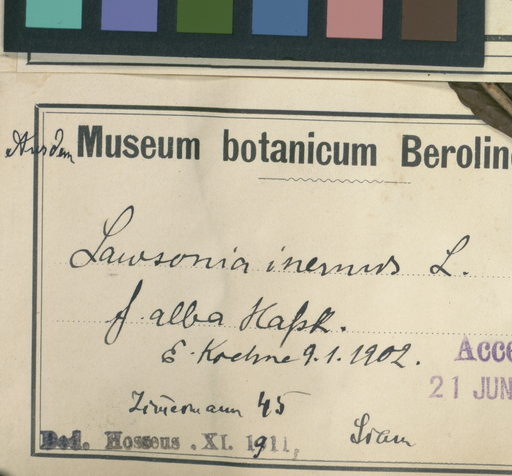 Aus dem Museum botanicum Berolin
Lawsonia inermis L.
f. alba Haßk.
E. Koehne 9.1.1902.
Acce
21 JUN
Zimermann 45
Ded. Hosseus . XI. 1911,
Siam